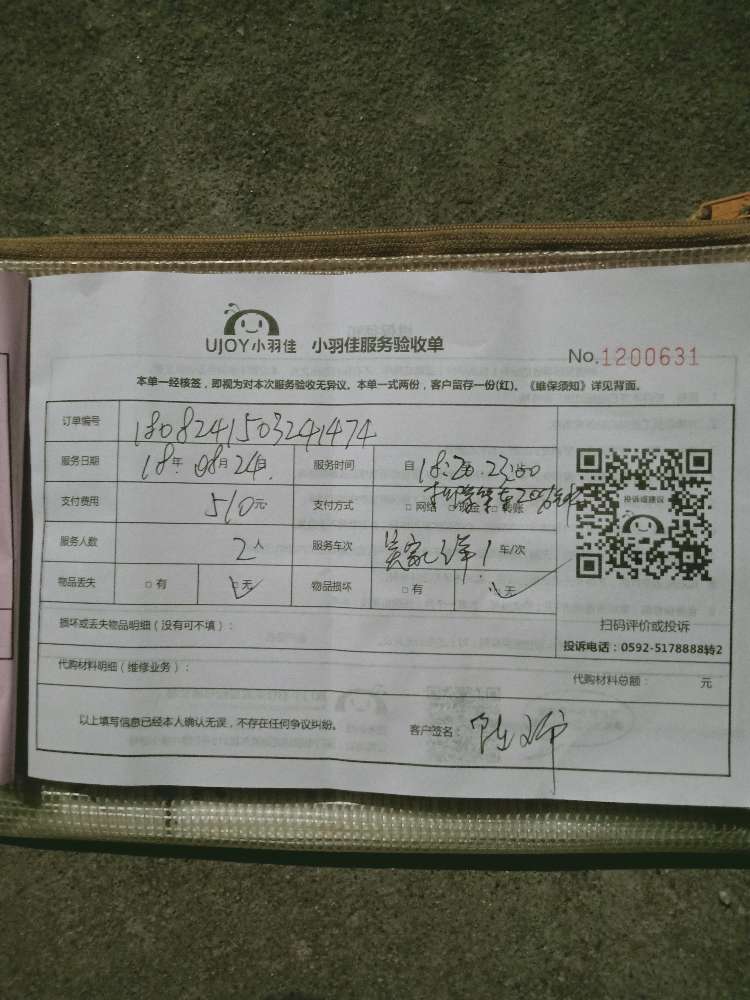 UJOY小羽佳 小羽佳服务验收单
No.1200631
本单一经核签，即视为对本次服务验收无异议。本单一式两份，客户留存一份(红)。《维保须知》详见背面。
订单编号 1808241503241474
服务日期 18年 08月 24日 服务时间 自 18:20 23:00
支付费用 510元 支付方式 □ 网络 □ 现金 □ 转账
服务人数 2人 服务车次 1 车/次
物品丢失 □ 有 □ 无 物品损坏 □ 有 □ 无
投诉或建议
扫码评价或投诉
投诉电话：0592-5178888转2
损坏或丢失物品明细（没有可不填）：
代购材料明细（维修业务）： 代购材料总额： 元
以上填写信息已经本人确认无误，不存在任何争议纠纷。 客户签名：